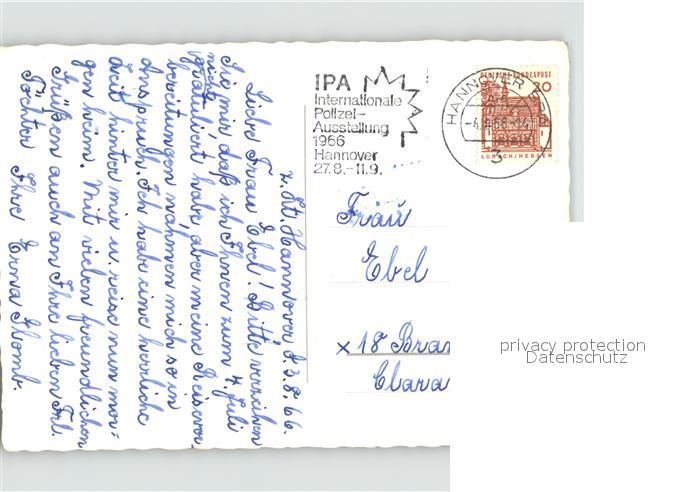 z. Zt. Hannover d 3.8.66.
Liebe Frau Ebel! Bitte verzeihen
Sie mir, daß ich Ihnen zum 4. Juli
nicht
gratuliert habe, aber meine Reisevor
bereitungen nahmen mich so in
Anspruch. Ich habe eine herrliche
Zeit hinter mir u. reise nun mor-
gen heim. Mit vielen freundlichen
Grüßen auch an Ihre lieben Frl.
Töchter Ihre Erna
IPA
Internationale
Polizei-
Ausstellung
1966
Hannover
27.8.-11.9.
HANNOVER
3
DEUTSCHE BUNDESPOST
20
LORSCH/HESSEN
Frau
Ebel
x 18 Bran
Clara
privacy protection
Datenschutz